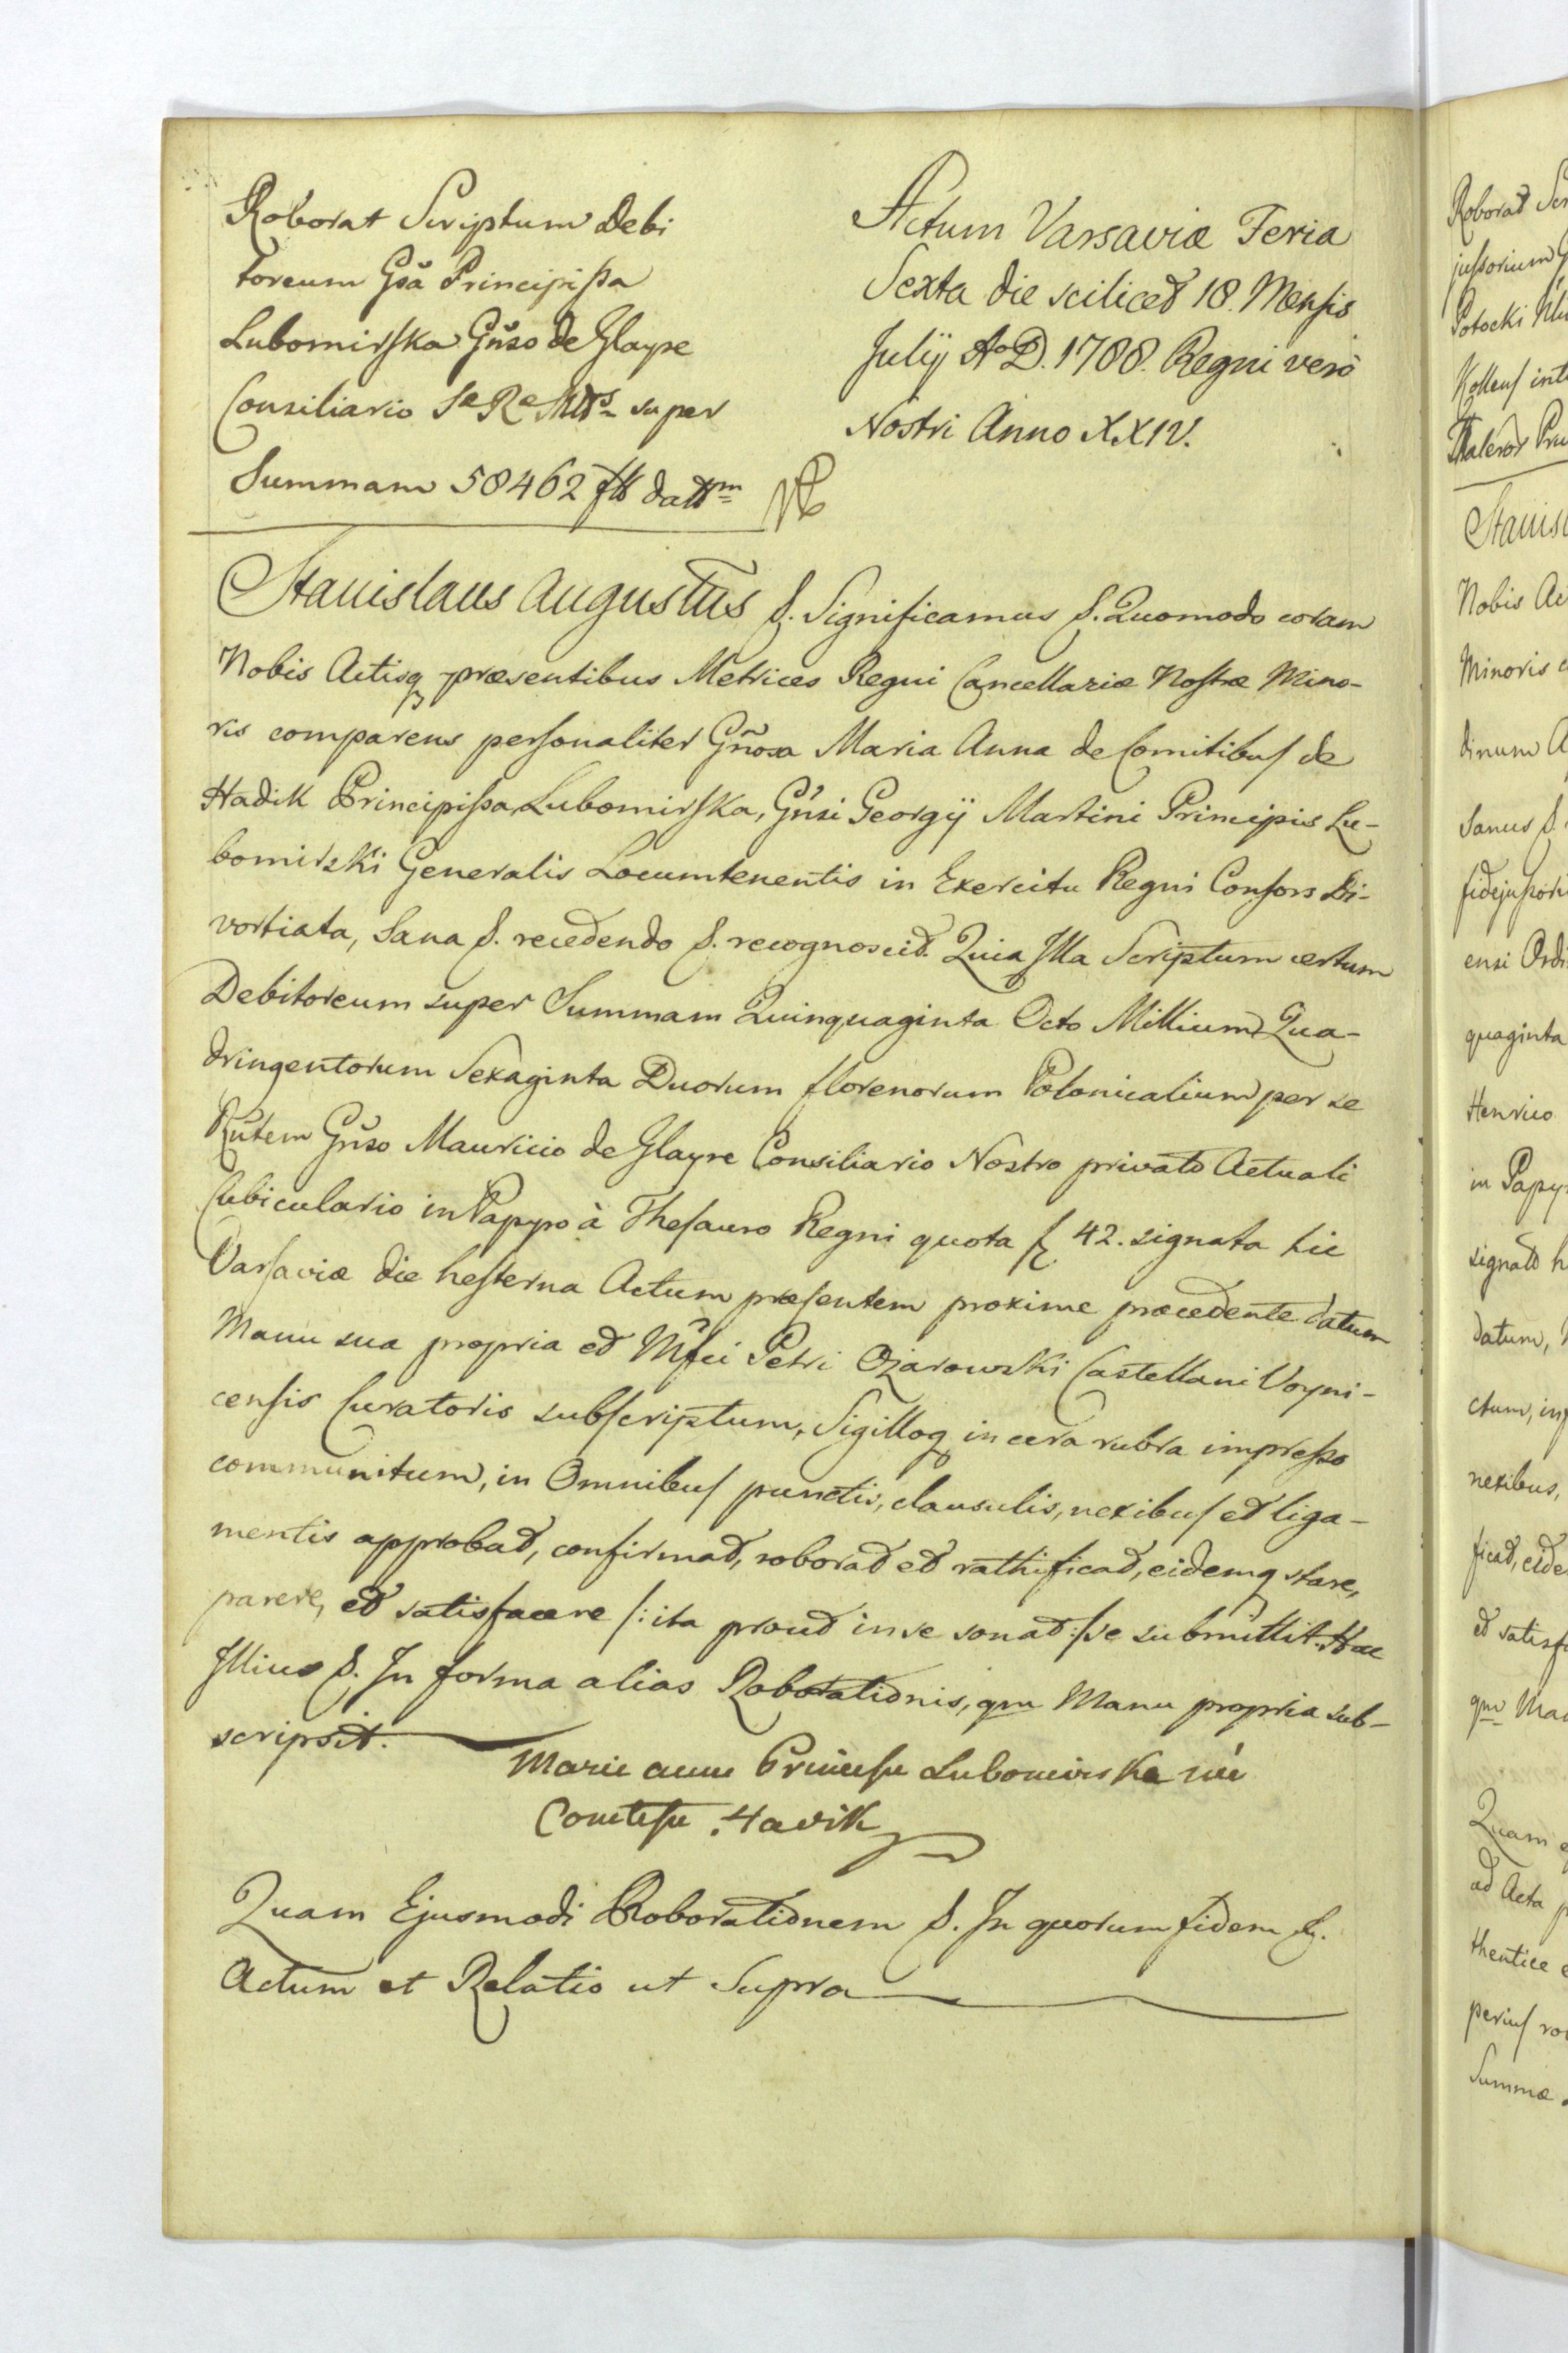 Roborat Scriptum Debi
toreum Gsă Principissa
Lubomirska Gñso de Glayre
Consiliario Sæ Ræ Mttis super
Summam 58462 fll datt m
Actum Varsaviæ Feria
Sexta die scilicet 18. Mensis
Julij Ao D. 1788. Regni verò
Nostri Anno XXIV.
Stanislaus Augustus &. Significamus &. Quomodo coram
Nobis Actisq præsentibus Metrices Regni Cancellariæ Nostræ Mino-
ris comparens personaliter Gñosa Maria Anna de Comitibus de
Hadik Principissa Lubomirska, Gñsi Georgij Martini Principis Lu-
bomirski Generalis Locumtenentis in Exercitu Regni Consors Di-
vortiata, Sana &. recedendo &. recognoscit. Quia Illa Scriptum certum
Debitoreum super Summam Quinquaginta Octo Millium Qua-
dringentorum Sexaginta Duorum florenorum Polonicalium per se
Rñtem Gñso Mauricio de Glayre Consiliario Nostro privato Actuali
Cubiculario in Papyro à Thesauro Regni quota fl 42. signata hic
Varsaviæ die hesterna Actum præsentem proxime præcedente datum
Manu sua propria et Mfci Petri Ożarowski Castellani Voyni-
censis Curatoris subscriptum, Sigilloq in cera rubra impresso
communitum, in Omnibus punctis, clausulis, nexibus et liga-
mentis approbat, confirmat, roborat et rathificat, eidemq stare,
parere, et satisfacere /: ita prout in se sonat :/ se submittit. Hac
Illius &. In forma alias Roborationis, qm Manu propria sub-
scripsit.
Marie anne Princesse Lubomirska née
Comtesse Hadik
Quam Ejusmodi Roborationem &. In quorum fidem &.
Actum et Relatio ut Supra
Roborat
Potocki
Nobis
Minoris
dinum
Sanus &.
ensi
quaginta
Henrico
in
signat
datum,
ctum,
nexibus,
ficat,
et
qm
Quam
ad Acta
thentice
Summæ